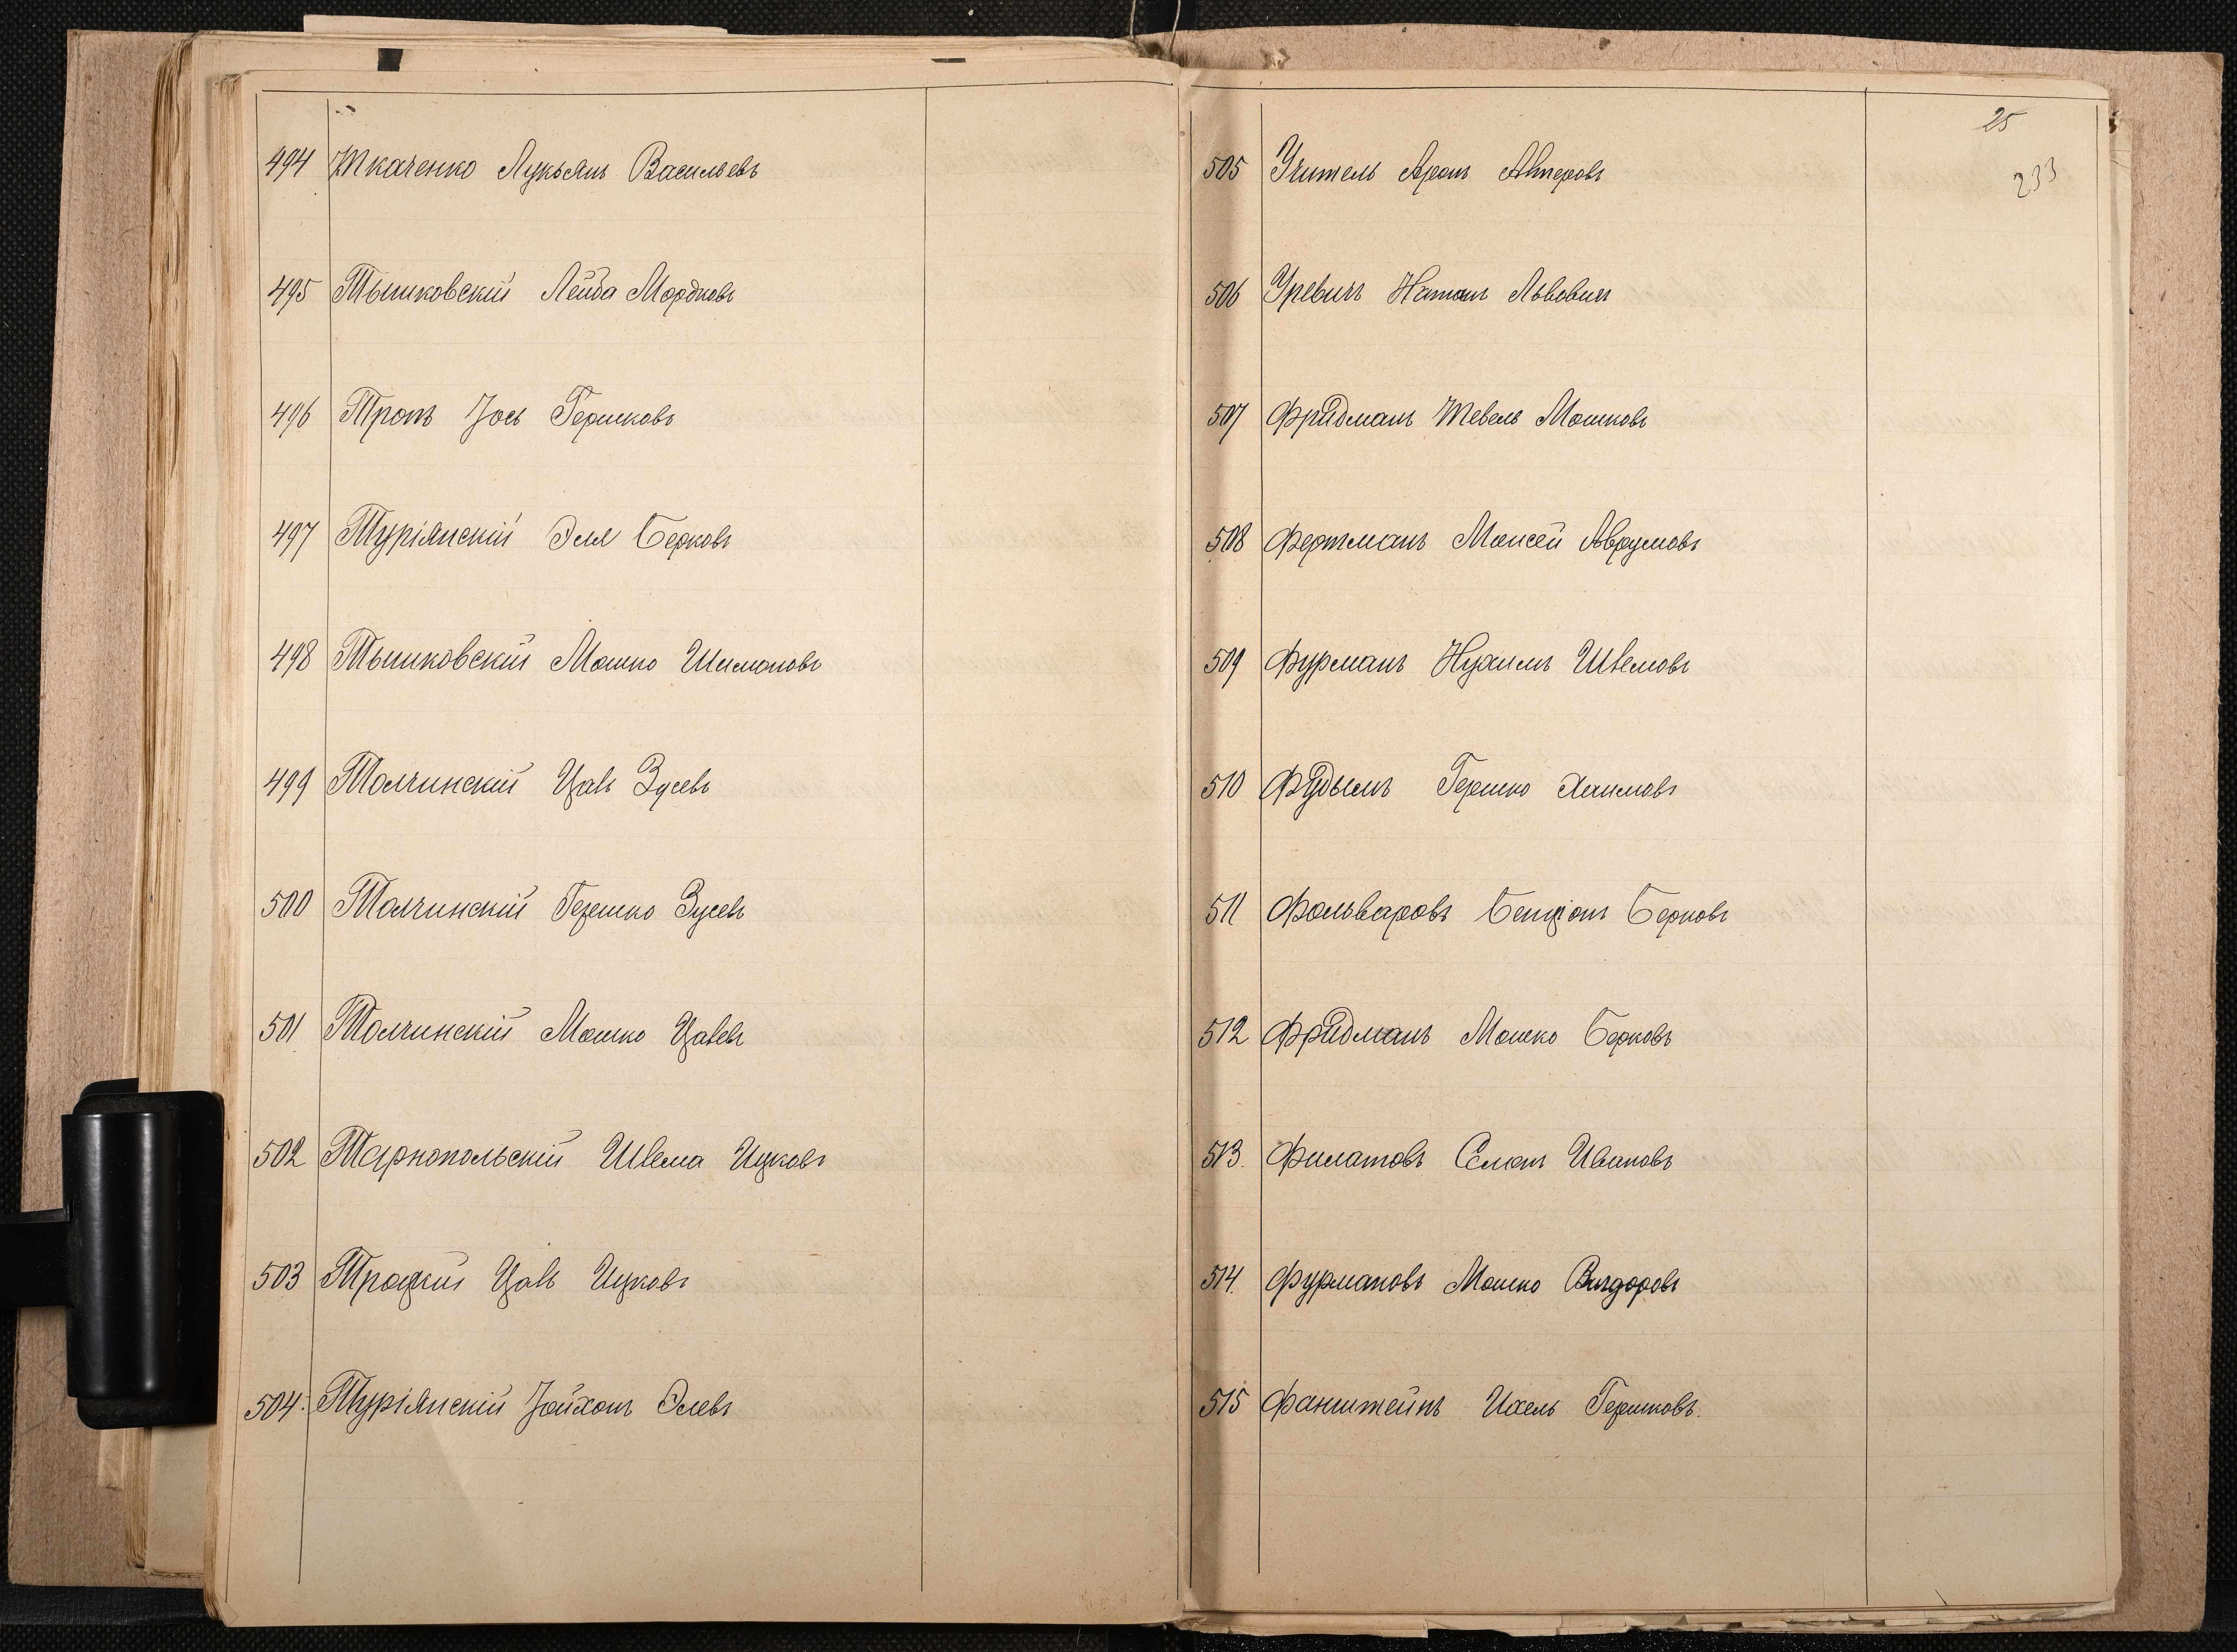 494 Ткаченко Лукьянъ Васильевъ
495 Тышковскій Лейба Мордковъ
496 Тропъ Іось Гершковъ
497 Турiянскій Эля Берковъ
498 Тышковскій Мошко Шимоновъ
499 Толчинскій Цалъ Зусевъ
500 Толчинскій Гершко Зусевъ
501 Толчинскій Мошко Цалевъ
502 Тарнопольскій Шлема Ицковъ
503 Троцкій Цалъ Ицковъ
504. Турiянскій Іойхонъ Элевъ
25
233
505 Учитель Аронъ Алтеровъ
506 Уревичъ Натанъ Львовичъ
507 Фридманъ Тевель Мошковъ
508 Фертманъ Моисей Аврумовъ
509 Фурманъ Нухимъ Шлемовъ
510 Фудымъ Гершко Хаимовъ
511 Фольваровъ Бенціонъ Берковъ
512 Фридманъ Мошко Берковъ
513. Филатовъ Ивановъ
514. Фурмановъ Мошко Вигдоровъ
515 Фанштейнъ Ихель Гершковъ.